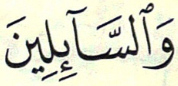 وَٱلسَّآئِلِينَ